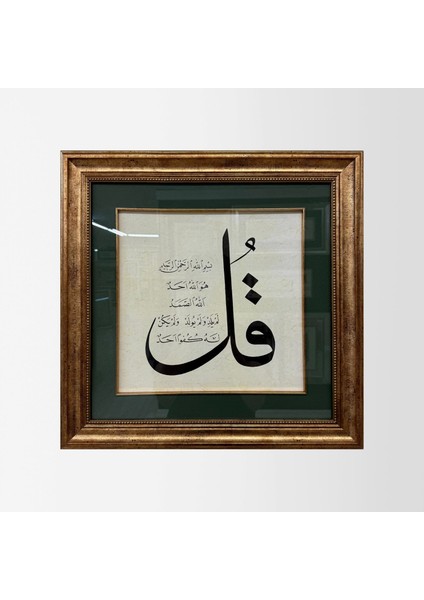 قُلْ
بِسْمِ اللهِ الرَّحْمٰنِ الرَّحِيمِ
هُوَ اللهُ اَحَدٌ
اَللهُ الصَّمَدُ
لَمْ يَلِدْ وَلَمْ يُولَدْ وَلَمْ يَكُنْ
لَهُ كُفُوًا اَحَدٌ